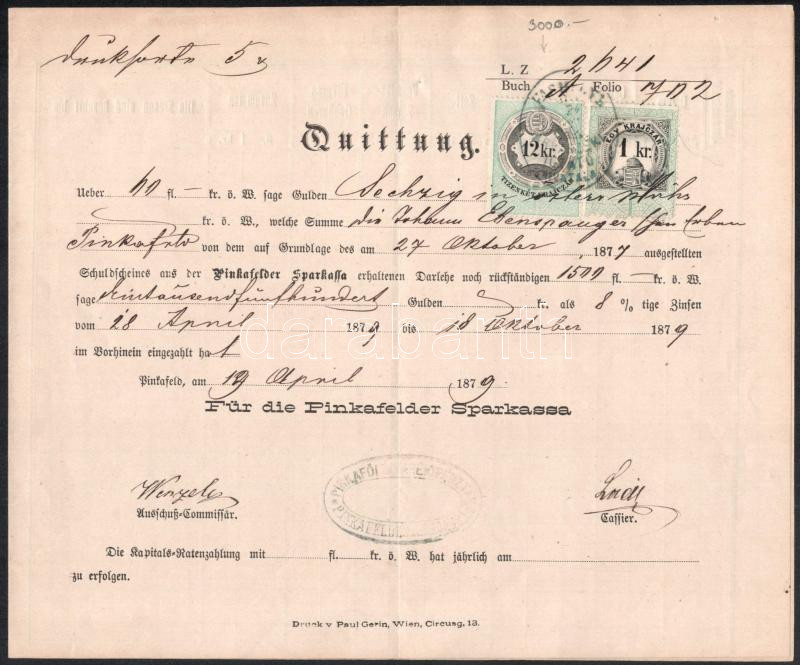 3000.-
5 x
L. Z. 2641
Buch A Folio 702
Quittung.
12 kr.
TIZENKÉT KRAJCZÁR
EGY KRAJCZÁR
1 kr.
Ueber 60 fl — kr. ö. W. sage Gulden Sechzig in österr Währ
kr. ö. W., welche Summe die Johann Ebenspanger'schen Erben
Pinkafeld von dem auf Grundlage des am 27 Oktober , 1877 ausgestellten
Schuldscheines aus der Pinkafelder Sparkassa erhaltenen Darlehe noch rückständigen 1500 fl — kr. ö. W.
sage Eintausendfünfhundert Gulden kr. als 8 % tige Zinsen
vom 18 April 1879 bis 18 Oktober 1879
im Vorhinein eingezahlt hat
Pinkafeld, am 19 April , 1879.
Für die Pinkafelder Sparkassa
Ausschuß-Commissär.
Cassier.
Die Kapitals-Ratenzahlung mit fl. kr. ö. W. hat jährlich am
zu erfolgen.
Druck v. Paul Gerin, Wien, Circusg. 13.
darabanth